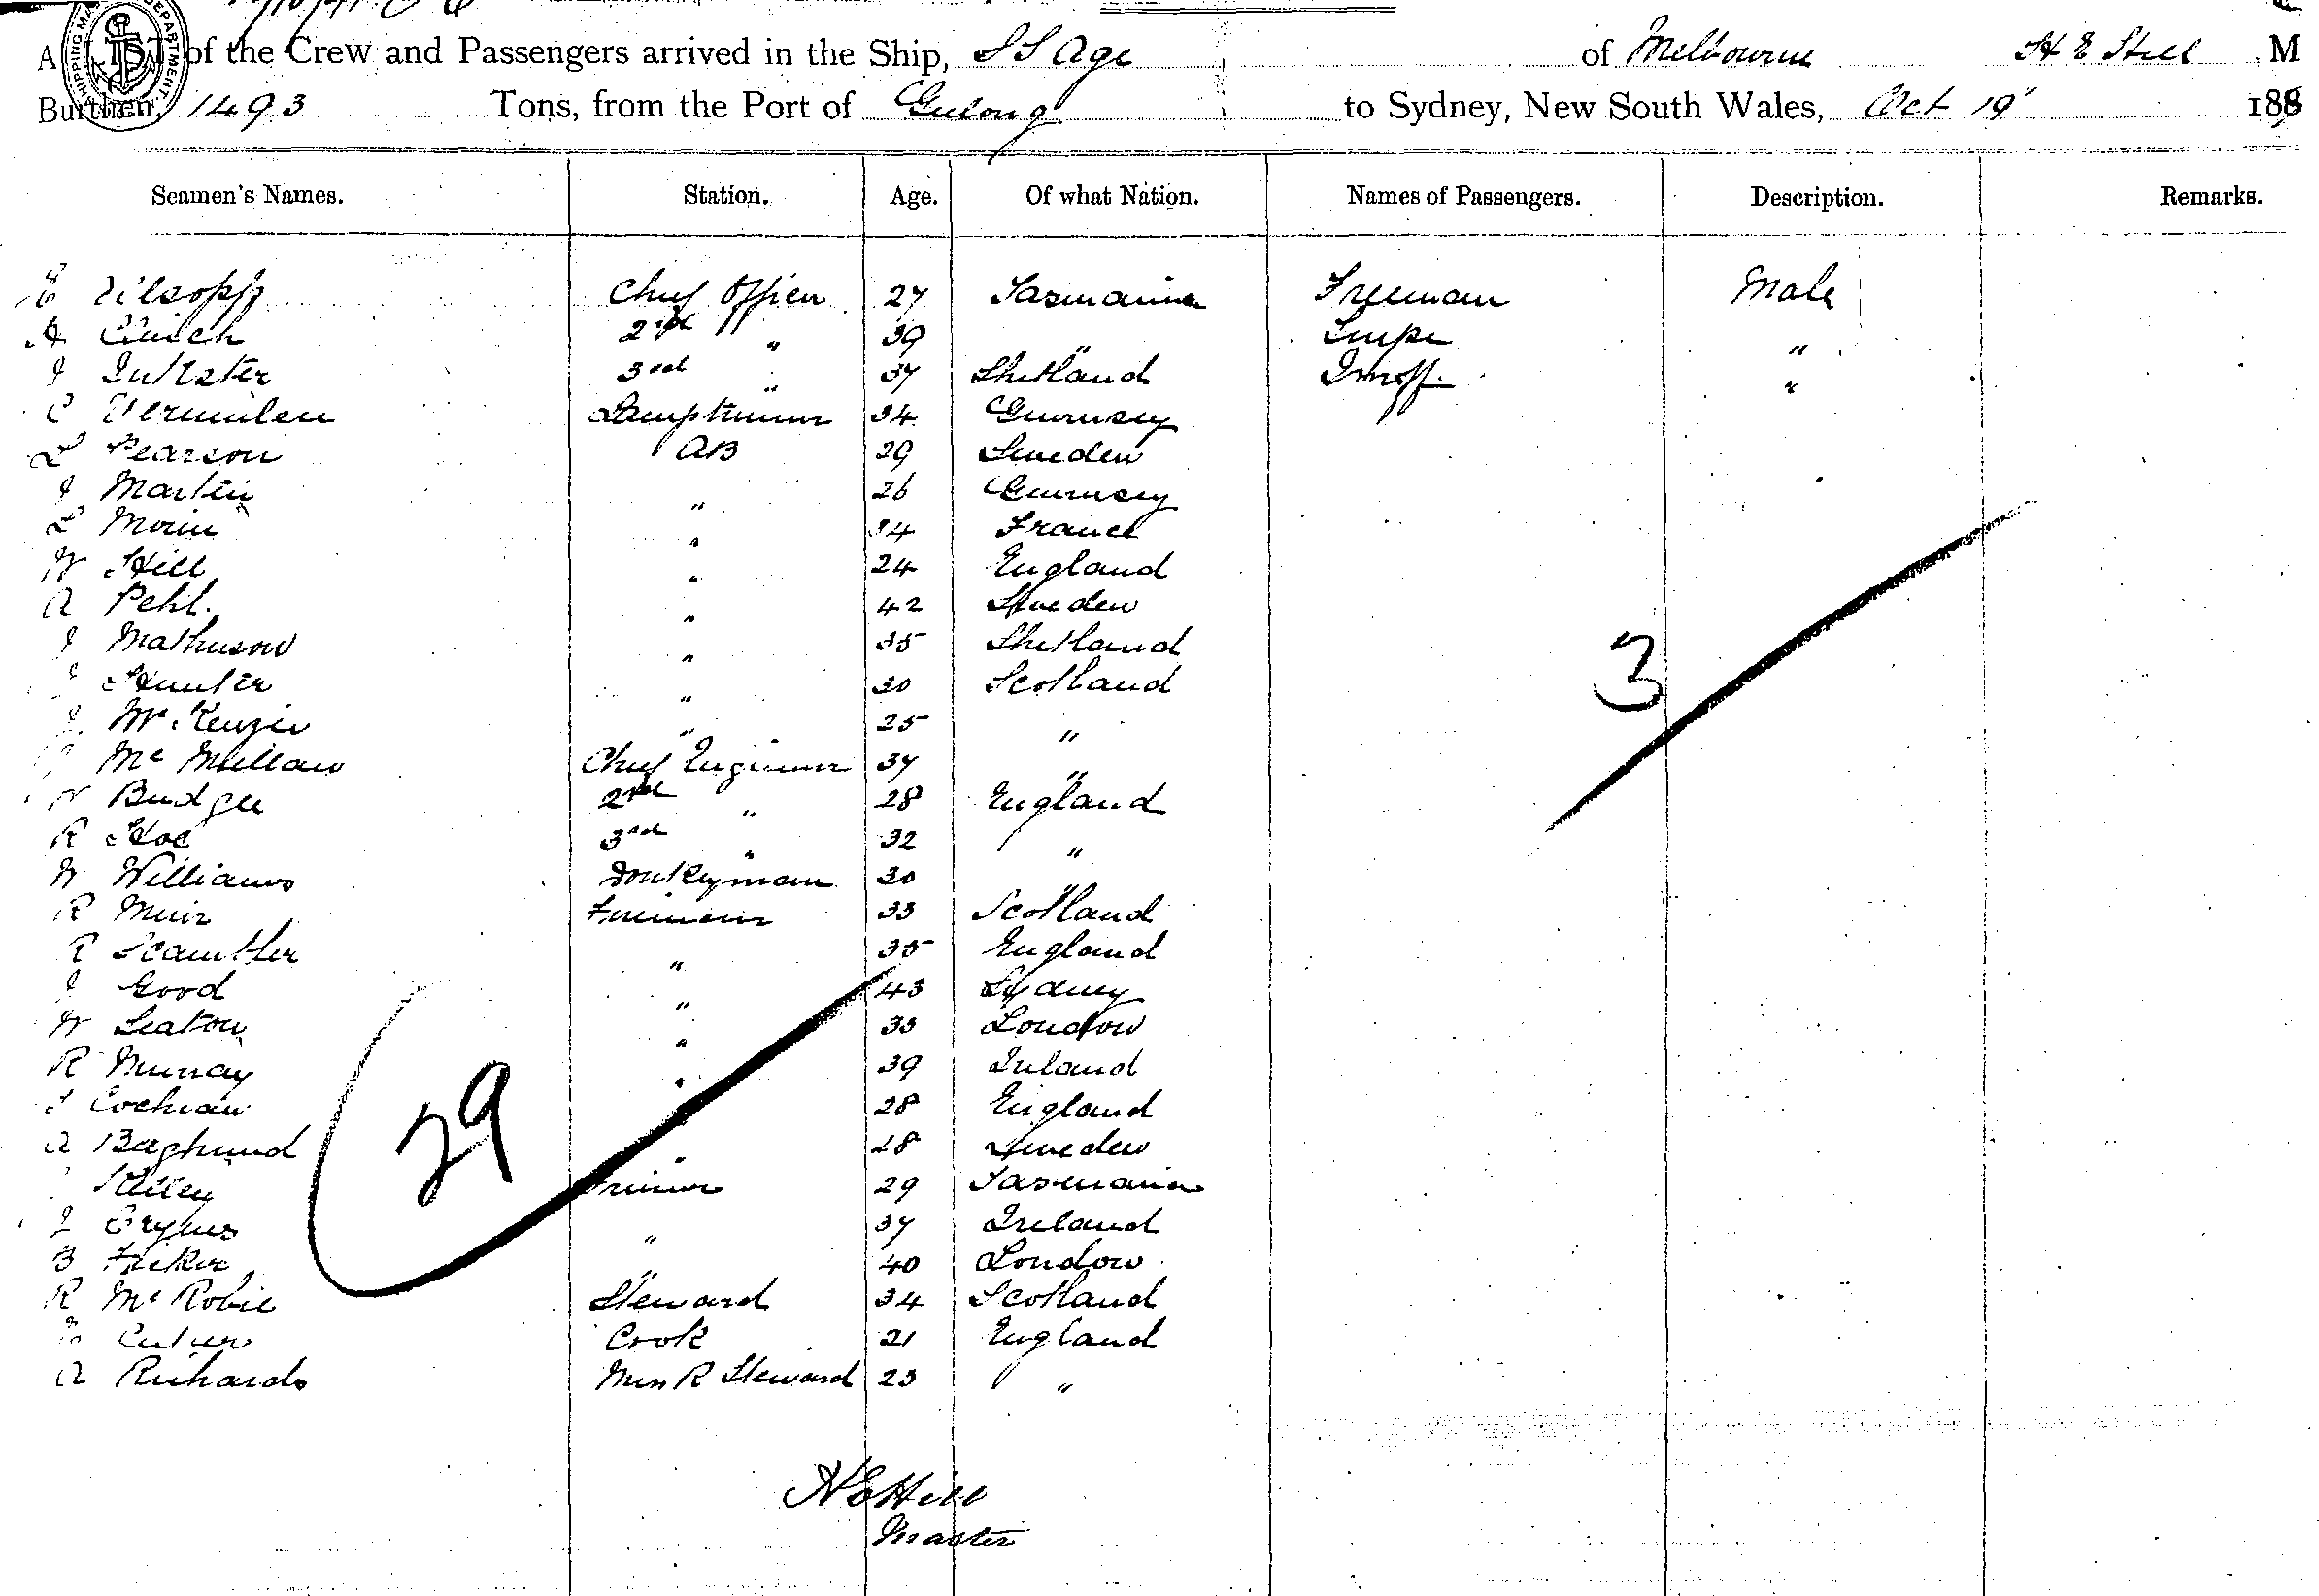 A LIST of the Crew and Passengers arrived in the Ship, SS Age of Melbourne H E Hill M
Burthen, 1493 Tons, from the Port of Geelong to Sydney, New South Wales, Oct 19 188
Seamen's Names. Station. Age. Of what Nation. Names of Passengers. Description. Remarks.
Chief Officer 27 Tasmania Freeman Male
A 2nd " 39 " "
J 3rd " 37 Shetland "
C Vermulen Lamptrimmer 34 Guernsey
L Pearson AB 29 Sweden
J Martin " 26 Guernsey
L Morin " 34 France
W Hill " 24 England
A Pehl. " 42 Sweden
J Mathieson " 35 Shetland
J Hunter " 30 Scotland
J McKenzie " 25 "
McMillan Chief Engineer 37 "
W Budge 2nd " 28 England
R 3rd " 32 "
W Williams Donkeyman 30 "
R Muir Fireman 33 Scotland
R Scambler " 35 England
J Good " 43 Sydney
W Seaton " 33 London
R Murray " 39 Ireland
Cochran 28 England
A Berglund " 28 Sweden
Kelley Trimmer 29 Tasmania
J " 37 Ireland
" 40 London
R McRobie Steward 34 Scotland
Cook 21 England
A Richards Mess R Steward 23 "
29
3
H E Hill
Master